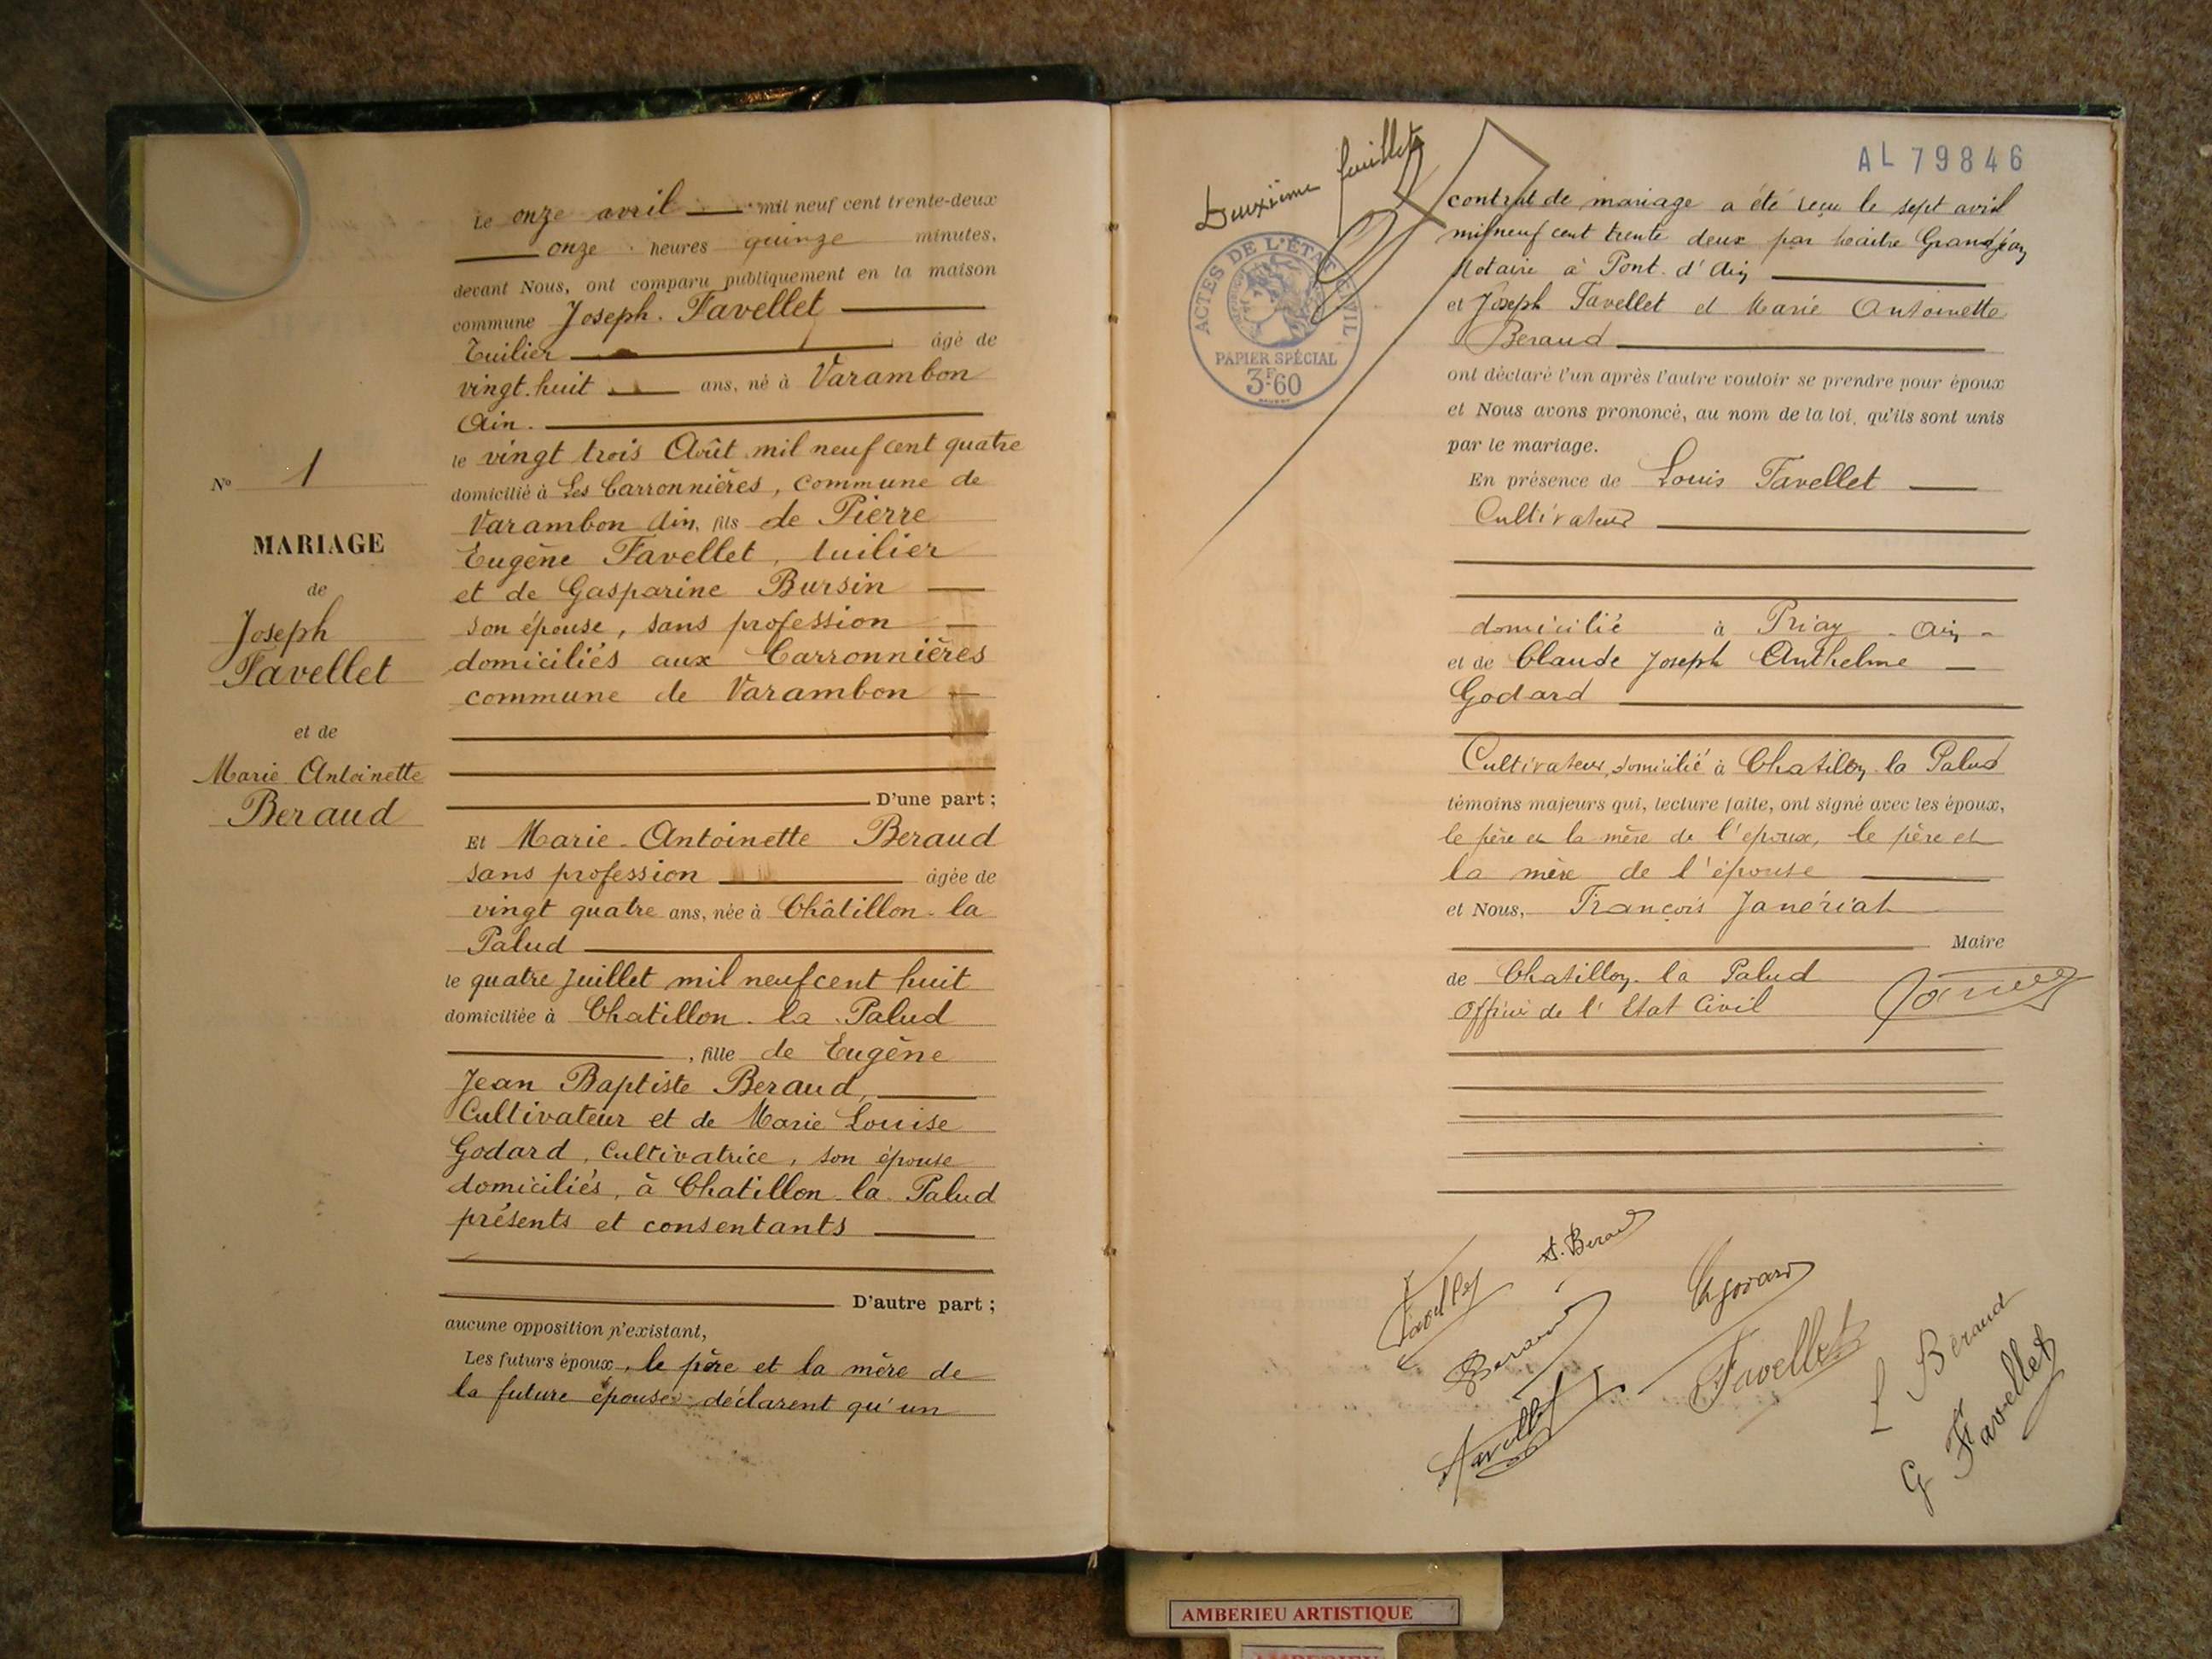 Le onze avril mil neuf cent trente-deux
onze heures quinze minutes,
devant Nous, ont comparu publiquement en la maison
commune Joseph. Favellet
Tuilier âgé de
vingt.huit ans, né à Varambon
Ain.
le vingt trois Août mil neuf cent quatre
domicilié à Les Carronnières, commune de
Varambon Ain, fils de Pierre
Eugène Favellet, tuilier
et de Gasparine Bursin
son épouse, sans profession
domiciliés aux Carronnières
commune de Varambon
D'une part;
Et Marie-Antoinette Beraud
sans profession âgée de
vingt quatre ans, née à Châtillon-la
Palud
le quatre juillet mil neuf cent huit
domiciliée à Chatillon-la-Palud
, fille de Eugène
Jean Baptiste Beraud,
Cultivateur et de Marie Louise
Godard, Cultivatrice, son épouse
domiciliés, à Chatillon-la-Palud
présents et consentants
D'autre part;
aucune opposition n'existant,
Les futurs époux, le père et la mère de
la future épouse déclarent qu'un
N° 1
MARIAGE
de
Joseph
Favellet
et de
Marie Antoinette
Beraud
Deuxième feuillet
ACTES DE L'ÉTAT CIVIL
PAPIER SPÉCIAL
3F.60
AL 79846
contrat de mariage a été reçu le sept avril
mil neuf cent trente deux par Maître Grandjean
Notaire à Pont-d'Ain
et Joseph Favellet et Marie Antoinette
Beraud
ont déclaré l'un après l'autre vouloir se prendre pour époux
et Nous avons prononcé, au nom de la loi, qu'ils sont unis
par le mariage.
En présence de Louis Favellet
Cultivateur
domicilié à Priay - Ain -
et de Claude Joseph Anthelme
Godard
Cultivateur, domicilié à Chatillon la Palud
témoins majeurs qui, lecture faite, ont signé avec les époux,
le père et la mère de l'époux, le père et
la mère de l'épouse
et Nous, François Janériat
Maire
de Chatillon-la Palud
Officier de l'Etat Civil
A. Beraud
Favellet
Godard
Beraud
Favellet
Favellet
L Béraud
G Favellet
AMBERIEU ARTISTIQUE
AMBERIEU